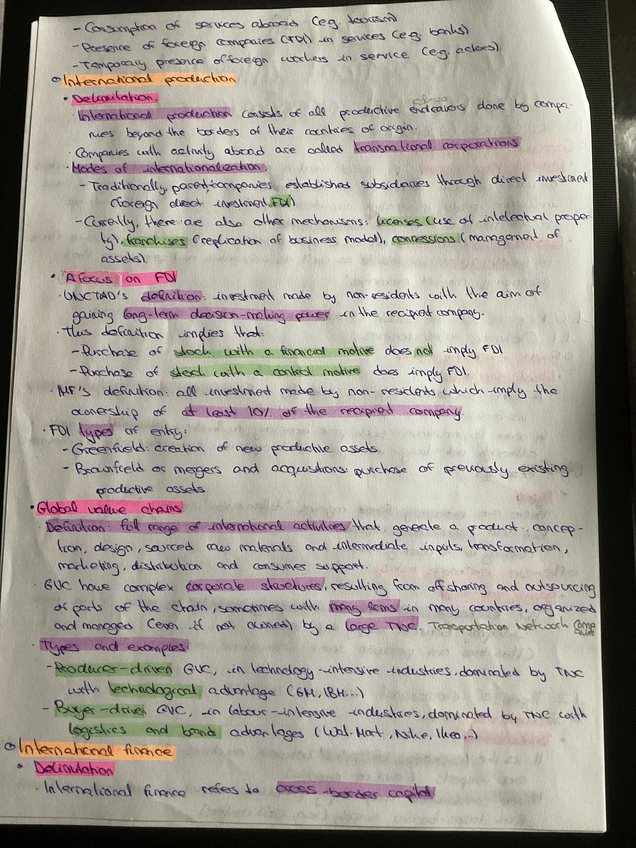 - Consumption of services abroad (e.g. tourism)
- Presence of foreign companies (FDI) in services (e.g. banks)
- Temporary presence of foreign workers in service (e.g. actors).
International production
• Delimitation
International production consists of all productive endeavors done by compa-
nies beyond the borders of their countries of origin.
· Companies with activity abroad are called transnational corporations
· Modes of internationalization.
- Traditionally, parent companies established subsidiaries through direct investment
(foreign direct investment, FDI)
- Currently, there are also other mechanisms: licenses (use of intelectual proper-
ty), franchises (replication of business model), concessions (management of
assets).
• A focus on FDI
· UNCTAD's definition: investment made by non-residents with the aim of
gaining long-term decision-making power in the recipient company.
· This definition implies that:
- Purchase of stock with a financial motive does not imply FDI
- Purchase of stock with a control motive does imply FDI.
· IMF's definition: all investment made by non-residents which imply the
ownership of at least 10% of the recipient company.
· FDI types of entry:
- Greenfield: creation of new productive assets.
- Brownfield or mergers and acquisitions: purchase of previously existing
productive assets
• Global value chains
Definition: full range of international activities that generate a product: concep-
tion, design, sourced raw materials and intermediate inputs, transformation,
marketing, distribution and consumer support.
· GVC have complex corporate structures, resulting from offshoring and outsourcing
of parts of the chain, sometimes with many firms in many countries, organized
and managed (even if not owned) by a large TNC. Transportation Network
· Types and examples
- Producer-driven GVC, in technology-intensive industries, dominated by TNC
with technological advantage (GM, IBM...)
- Buyer-driven GVC, in labour-intensive industries, dominated by TNC with
logistics and brand advantages (Wal-Mart, Nike, Ikea...)
International finance
• Delimitation
· International finance refers to cross-border capital